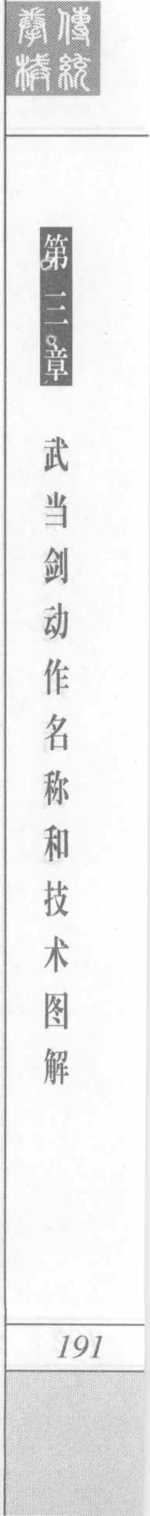 傳統
拳械
第三章
武当剑动作名称和技术图解
191